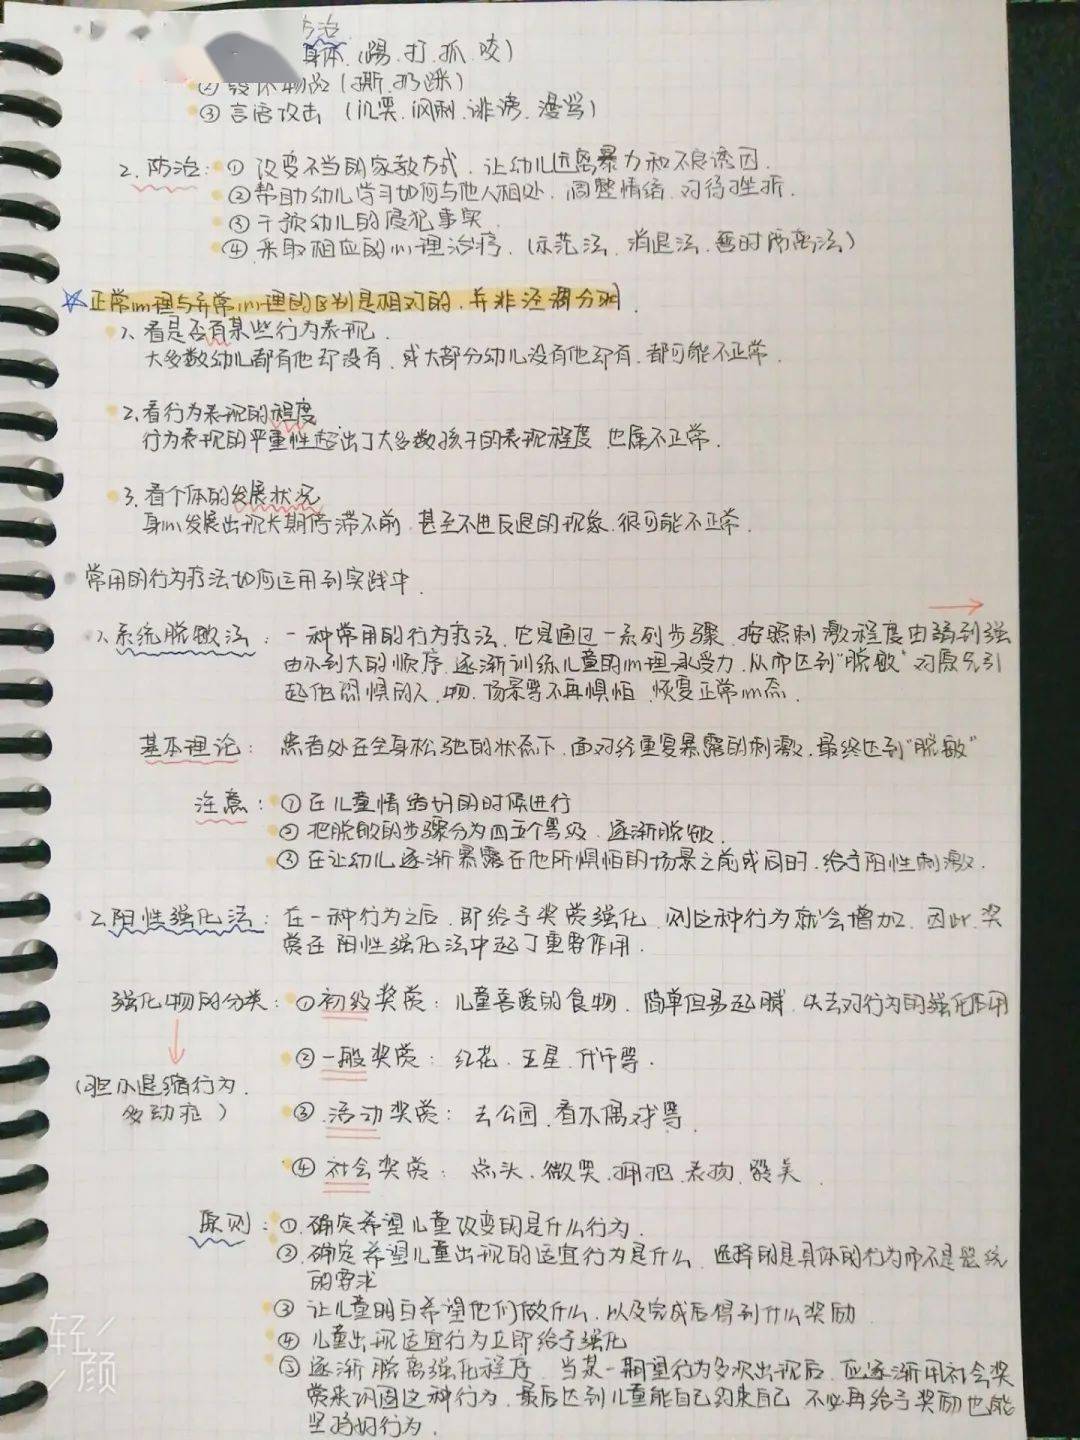 身体.(踢.打.抓.咬)
② 毁坏物品(撕.扔.踩)
③ 言语攻击 (讥笑.讽刺.诽谤.漫骂)
2.防治: ① 改变不当的家教方式.让幼儿远离暴力和不良诱因.
② 帮助幼儿学习如何与他人相处.调整情绪.对待挫折.
③ 干预幼儿的侵犯事实.
④ 采取相应的心理治疗.(示范法.消退法.暂时隔离法)
☆正常心理与异常心理的区别是相对的.并非泾渭分明.
1.看是否有某些行为表现.
大多数幼儿都有他却没有.或大部分幼儿没有他却有.都可能不正常.
2.看行为表现的程度.
行为表现的严重性超出了大多数孩子的表现程度.也属不正常.
3.看个体的发展状况
身心发展出现长期停滞不前.甚至不进反退的现象.很可能不正常.
常用的行为疗法如何运用到实践中.
1.系统脱敏法: 一种常用的行为疗法.它是通过一系列步骤.按照刺激程度由弱到强
由小到大的顺序.逐渐训练儿童的心理承受力.从而达到"脱敏"对原先引
起他恐惧的人.物.场景等不再惧怕.恢复正常心态.
基本理论: 患者处在全身松弛的状态下.面对经重复暴露的刺激.最终达到"脱敏"
注意: ① 在儿童情绪好的时候进行
② 把脱敏的步骤分为四五个等级.逐渐脱敏.
③ 在让幼儿逐渐暴露在他所惧怕的场景之前或同时.给予阳性刺激.
2.阳性强化法: 在一种行为之后.即给予奖赏强化.则这种行为就会增加.因此.奖
赏在阳性强化法中起了重要作用.
强化物的分类: ① 初级奖赏: 儿童喜爱的食物.简单但易起腻.失去对行为的强化作用
② 一般奖赏: 红花.五星.代币等.
(胆小退缩行为.
多动症)
③ 活动奖赏: 去公园.看木偶戏等.
④ 社会奖赏: 点头.微笑.拥抱.表扬.赞美.
原则: ①.确定希望儿童改变的是什么行为.
②.确定希望儿童出现的适宜行为是什么.选择的是具体的行为而不是笼统
的要求
③ 让儿童明白希望他们做什么.以及完成后得到什么奖励.
④ 儿童出现适宜行为立即给予强化
⑤ 逐渐脱离强化程序.当某一期望行为多次出现后.应逐渐用社会奖
赏来巩固这种行为.最后达到儿童能自己约束自己.不必再给予奖励也能
坚持好行为.
轻
颜